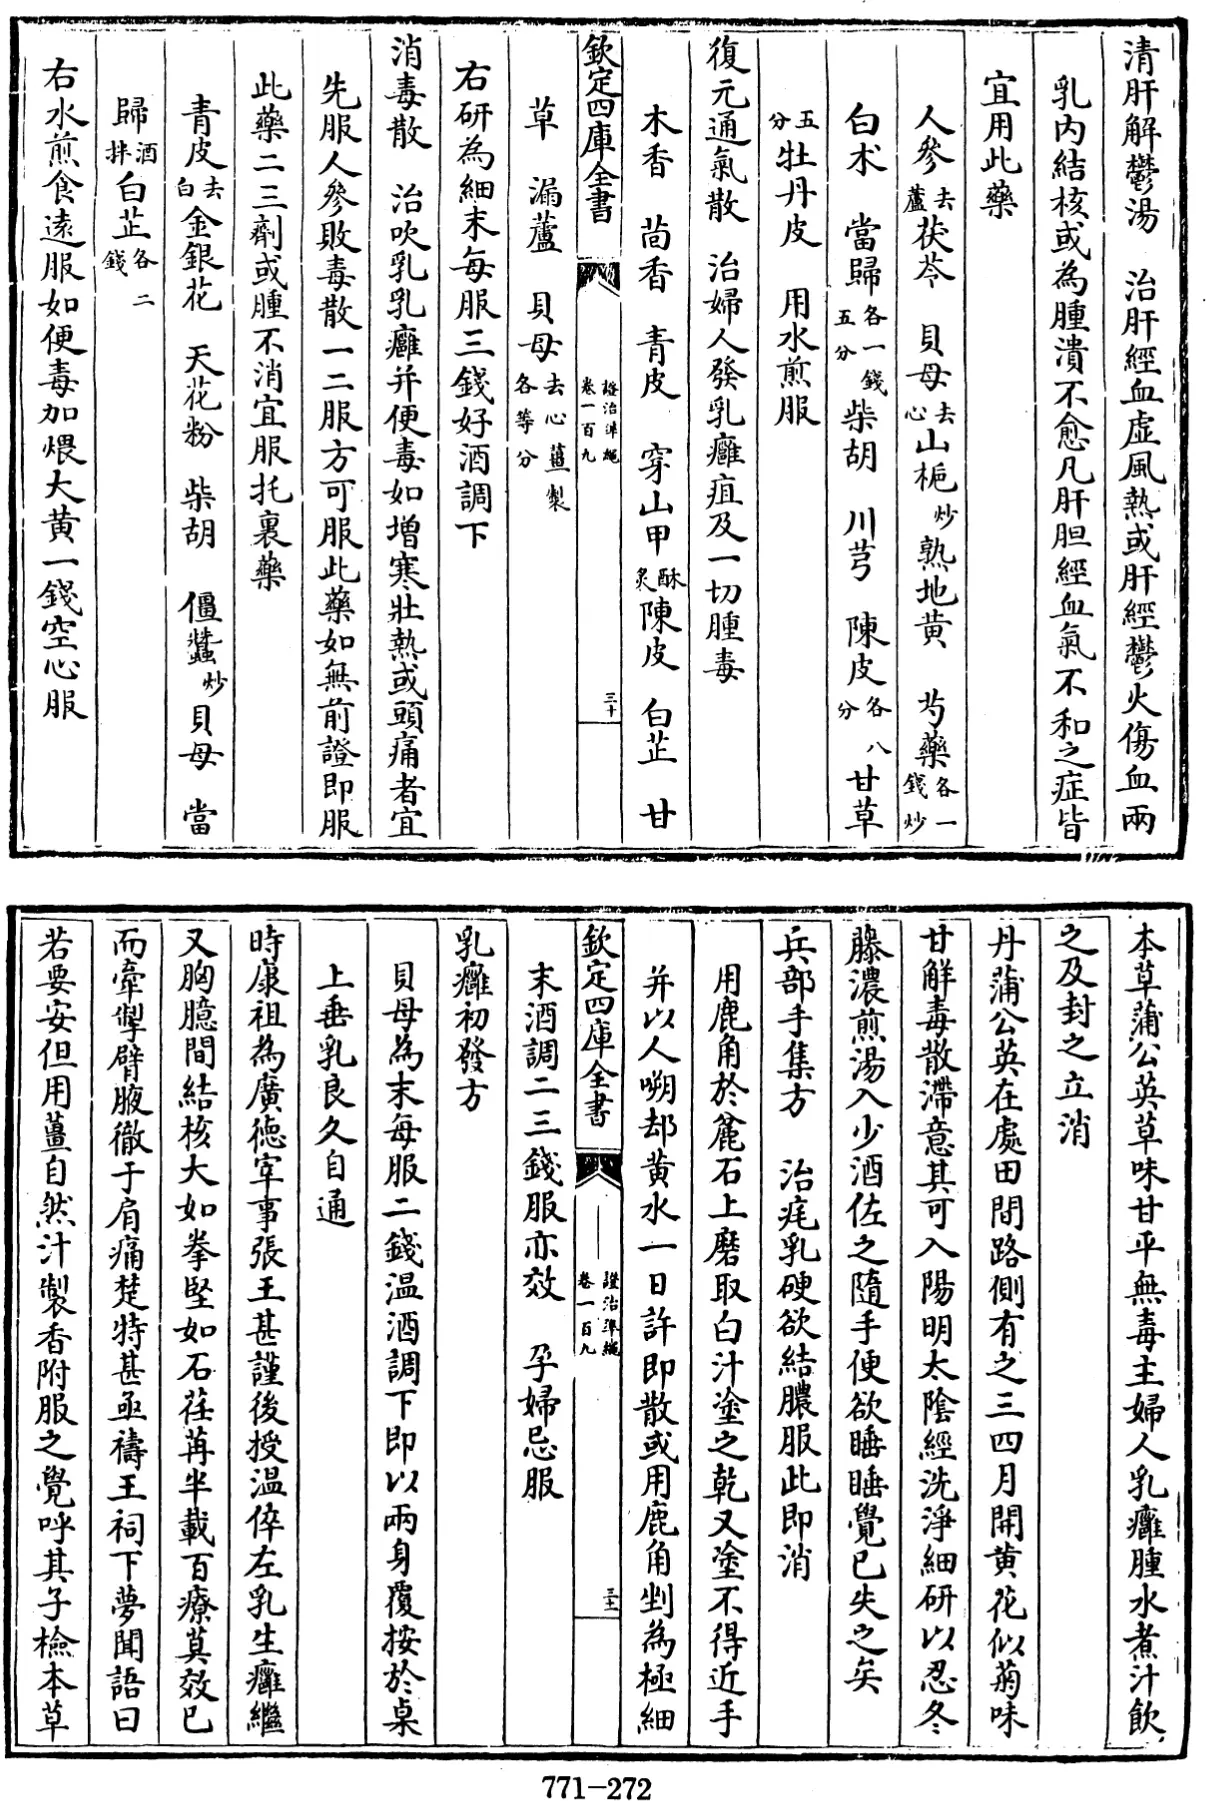 清肝解鬱湯　治肝經血虛風熱或肝經鬱火傷血兩
乳内結核或為腫潰不愈凡肝胆經血氣不和之症皆
宜用此藥
人參去蘆茯苓　貝母去心山梔炒熟地黄　芍藥各一錢炒
白术　當歸各一錢五分柴胡　川芎　陳皮各八分甘草
五分牡丹皮　用水煎服
復元通氣散　治婦人發乳癰疽及一切腫毒
木香　茴香　青皮　穿山甲酥炙陳皮　白芷　甘
欽定四庫全書
證治準繩
卷一百九
三十
草　漏蘆　貝母去心薑製各等分
右研為細末每服三錢好酒調下
消毒散　治吹乳乳癰并便毒如增寒壯熱或頭痛者宜
先服人參敗毒散一二服方可服此藥如無前證即服
此藥二三劑或腫不消宜服托裏藥
青皮去白金銀花　天花粉　柴胡　僵蠶炒貝母　當
歸酒拌白芷各二錢
右水煎食逺服如便毒加煨大黄一錢空心服
本草蒲公英草味甘平無毒主婦人乳癰腫水煮汁飲
之及封之立消
丹蒲公英在處田間路側有之三四月開黄花似菊味
甘解毒散滯意其可入陽明太陰經洗淨細研以忍冬
藤濃煎湯入少酒佐之隨手便欲睡睡覺已失之矣
兵部手集方　治疣乳硬欲結膿服此即消
用鹿角於麄石上磨取白汁塗之乾又塗不得近手
并以人嗍却黄水一日許即散或用鹿角剉為極細
欽定四庫全書
證治準繩
卷一百九
三十一
末酒調二三錢服亦效　孕婦忌服
乳癰初發方
貝母為末每服二錢温酒調下即以兩身覆按於桌
上垂乳良久自通
時康祖為廣德宰事張王甚謹後授温倅左乳生癰繼
又胸臆間結核大如拳堅如石荏苒半載百療莫效已
而牽掣臂腋徹于肩痛楚特甚亟禱王祠下夢聞語曰
若要安但用薑自然汁製香附服之覺呼其子檢本草
771-272